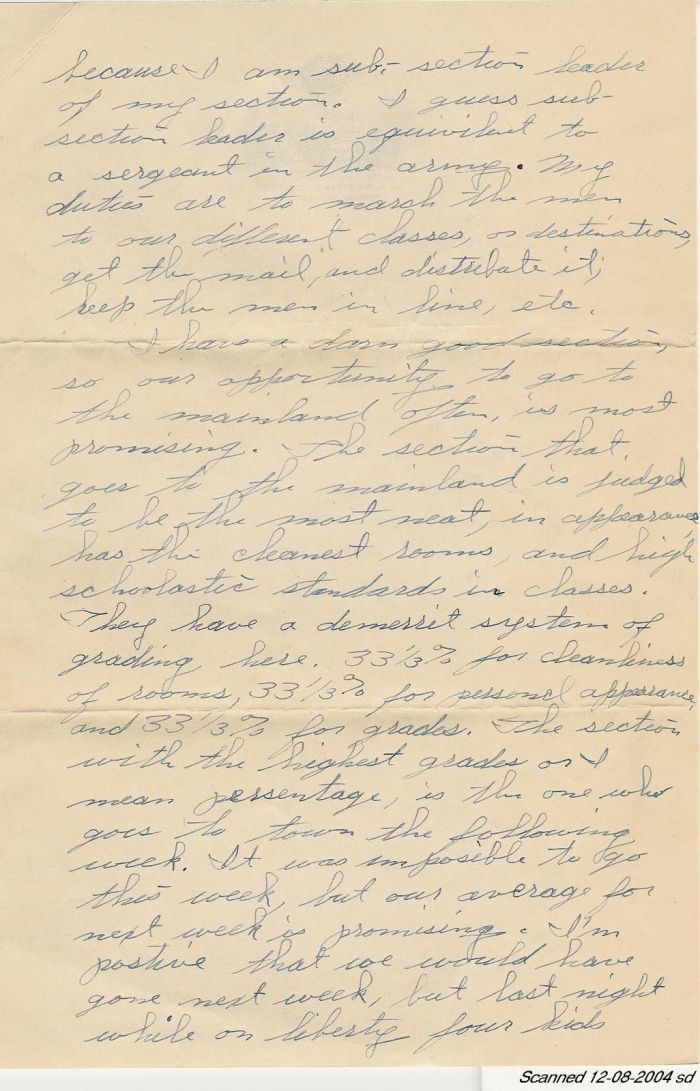 because I am sub-section leader
of my section. I guess sub-
section leader is equivilent to
a sergeant in the army. My
duties are to march the men
to our different classes, or destinations,
get the mail, and distribute it,
keep the men in line, etc.
I have a darn good section,
so our opportunity to go to
the mainland often, is most
promising. The section that
goes to the mainland is judged
to be the most neat, in appearance,
has the cleanest rooms, and high
schoolastic standards in classes.
They have a demerrit system of
grading here. 33 1/3% for cleanliness
of rooms, 33 1/3% for personel appearance,
and 33 1/3% for grades. The section
with the highest grades or I
mean persentage, is the one who
goes to town the following
week. It was imposible to go
this week, but our average for
next week is promising. I'm
postive that we would have
gone next week, but last night
while on liberty four kids
Scanned 12-08-2004 sd